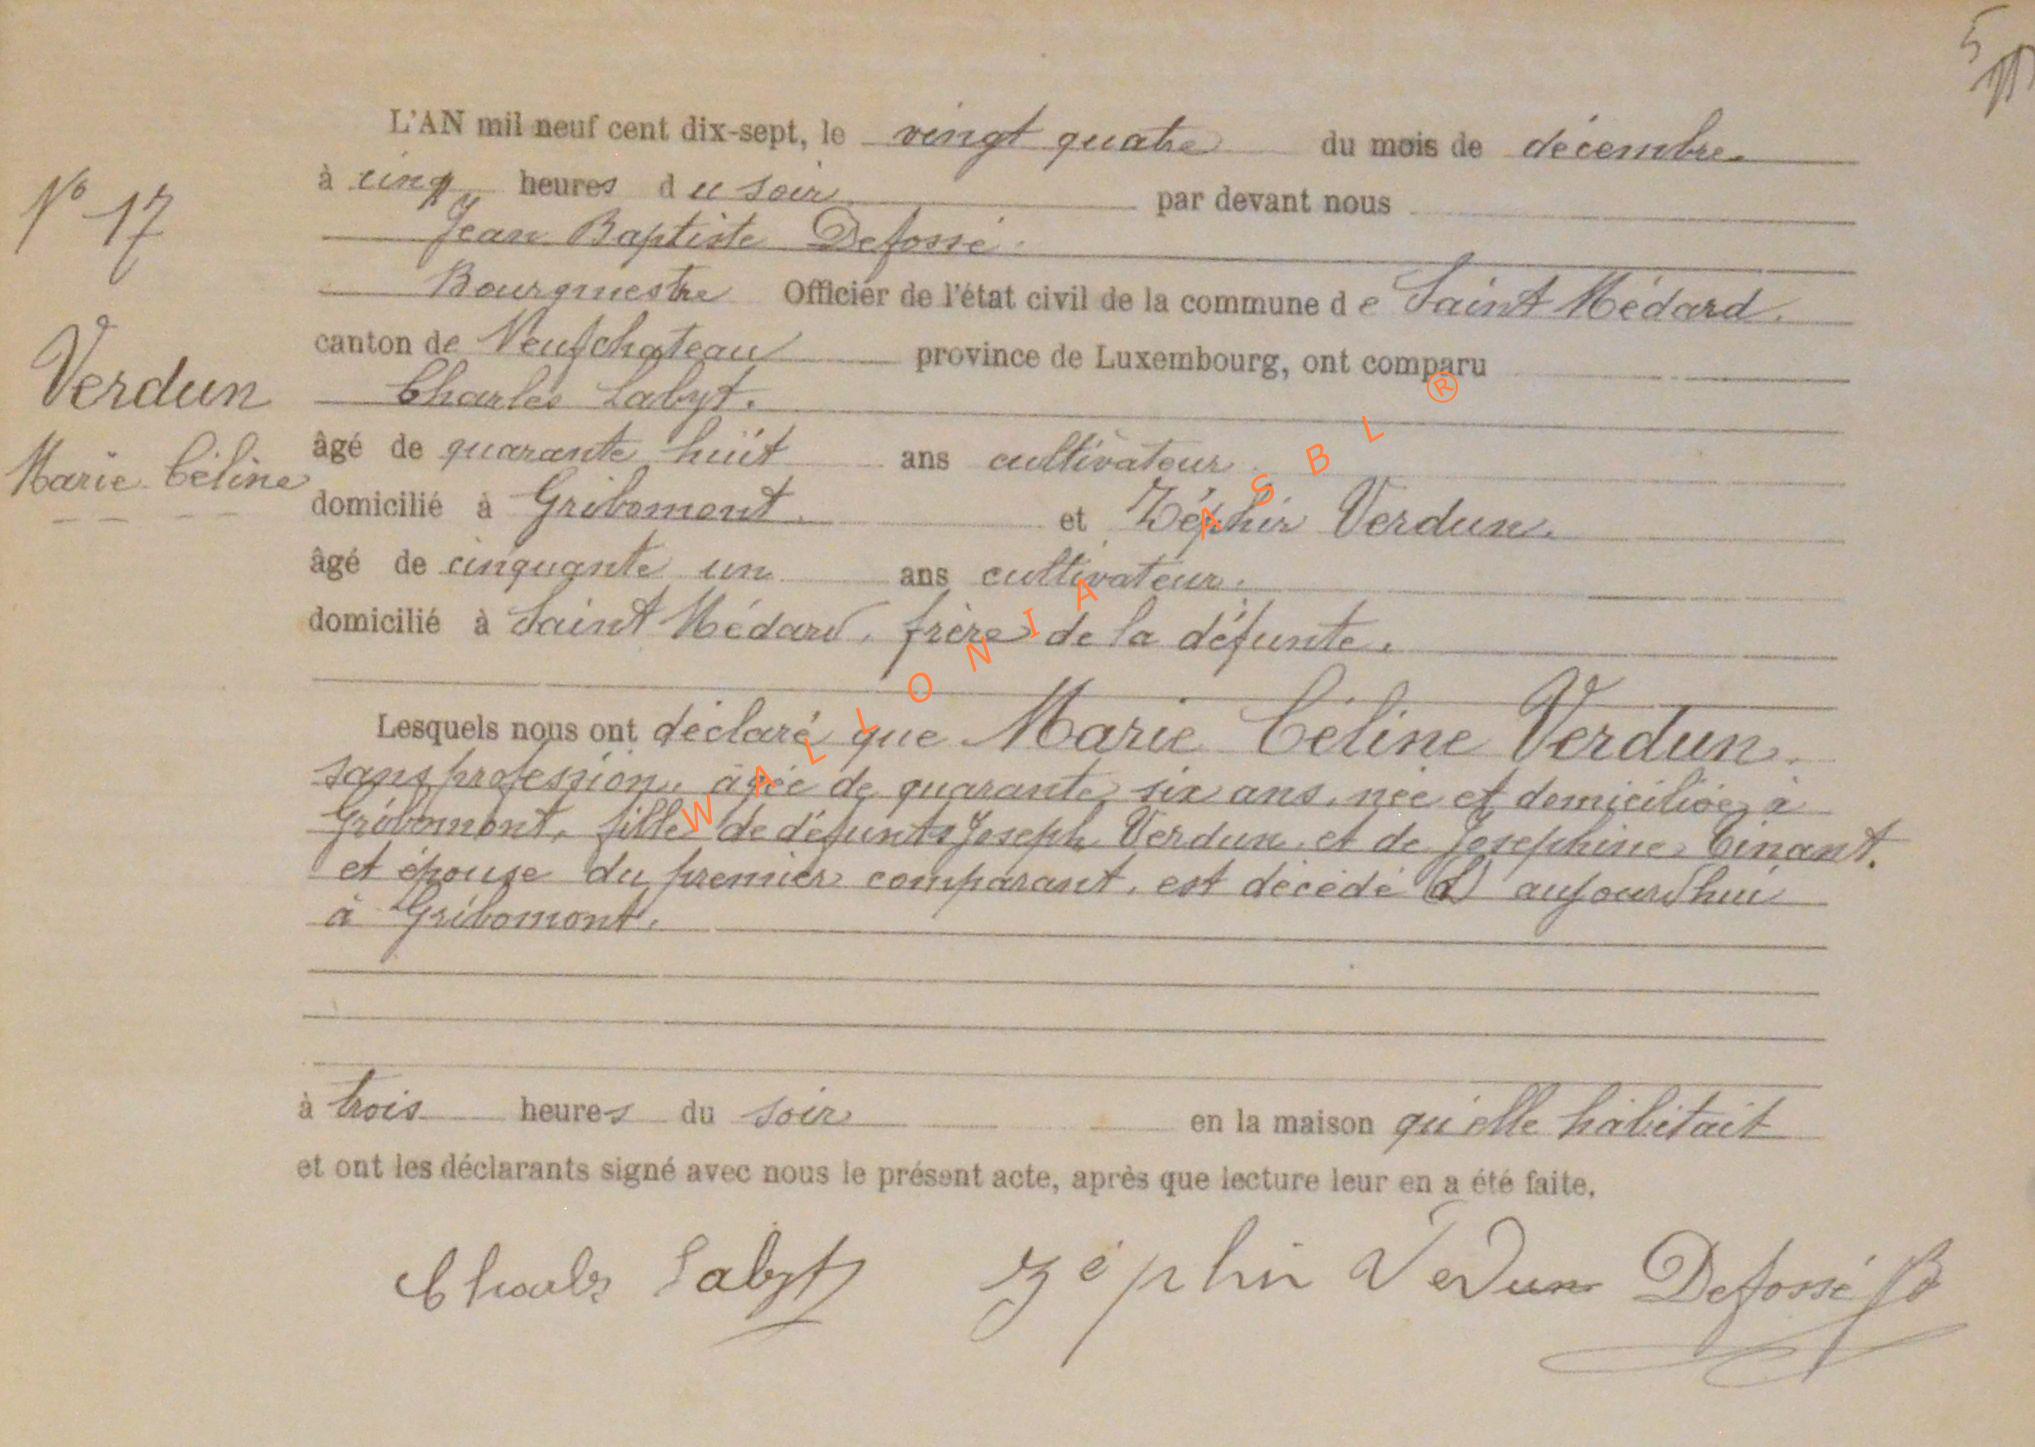 5
L'AN mil neuf cent dix-sept, le vingt quatre du mois de décembre.
à cinq heures du soir par devant nous
N° 17
Jean Baptiste Defossé.
Bourgmestre Officier de l'état civil de la commune de Saint Médard.
canton de Neufchateau province de Luxembourg, ont comparu
Verdun
Charles Labyt.
Marie Céline
âgé de quarante huit ans cultivateur.
domicilié à Gribomont. et Zéphir Verdun.
âgé de cinquante un ans cultivateur.
domicilié à Saint Médard, frère de la défunte.
Lesquels nous ont déclaré que Marie Céline Verdun.
sans profession, âgée de quarante six ans, née et domiciliée à
Gribomont, fille de défunts Joseph Verdun et de Josephine Tinant.
et épouse du premier comparant, est décédé aujourd'hui
à Gribomont.
à trois heures du soir en la maison qu'elle habitait
et ont les déclarants signé avec nous le présent acte, après que lecture leur en a été faite.
Charles Labyt Zéphir Verdun Defossé JB
WALLONIA ASBL ®